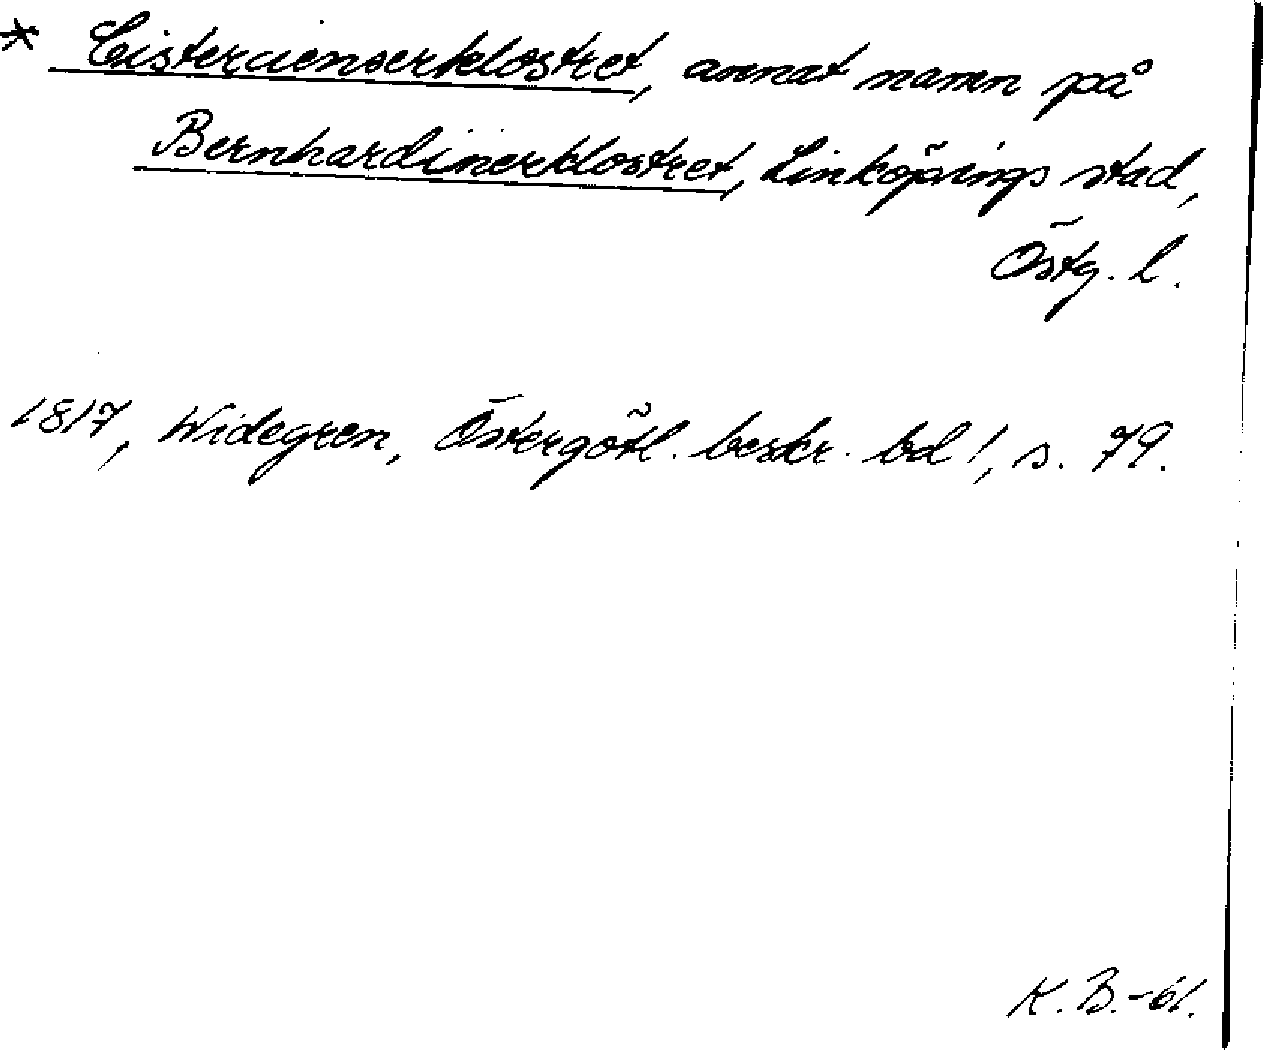 * Cisterciensierklostret, annat namn på
Bernhardinerklostret, Linköpings stad,
Östg. l.
1817, Widegren, Östergötl. beskr. bd 1, s. 79.
K. B. -61.